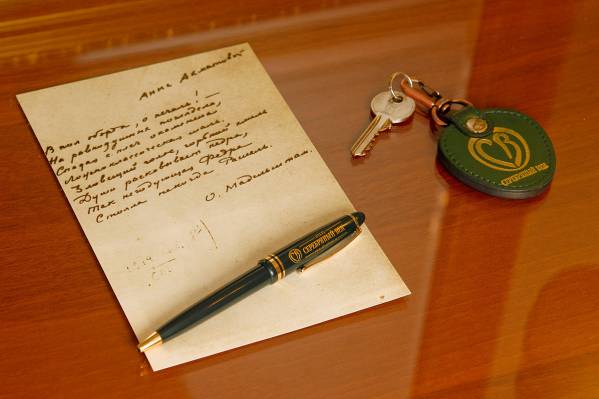 Анне Ахматовой
В пол оборота, о печаль! —
На равнодушных поглядела,
Спадая с плеч окаменела
Ложноклассическая шаль.
Зловещий голос, горький хмель
Души расковывает недра,
Так негодующая Федра
Стояла некогда Рашель.
О. Мандельштам.
СВ СЕРЕБРЯНЫЙ ВЕК
СВ
СЕРЕБРЯНЫЙ ВЕК